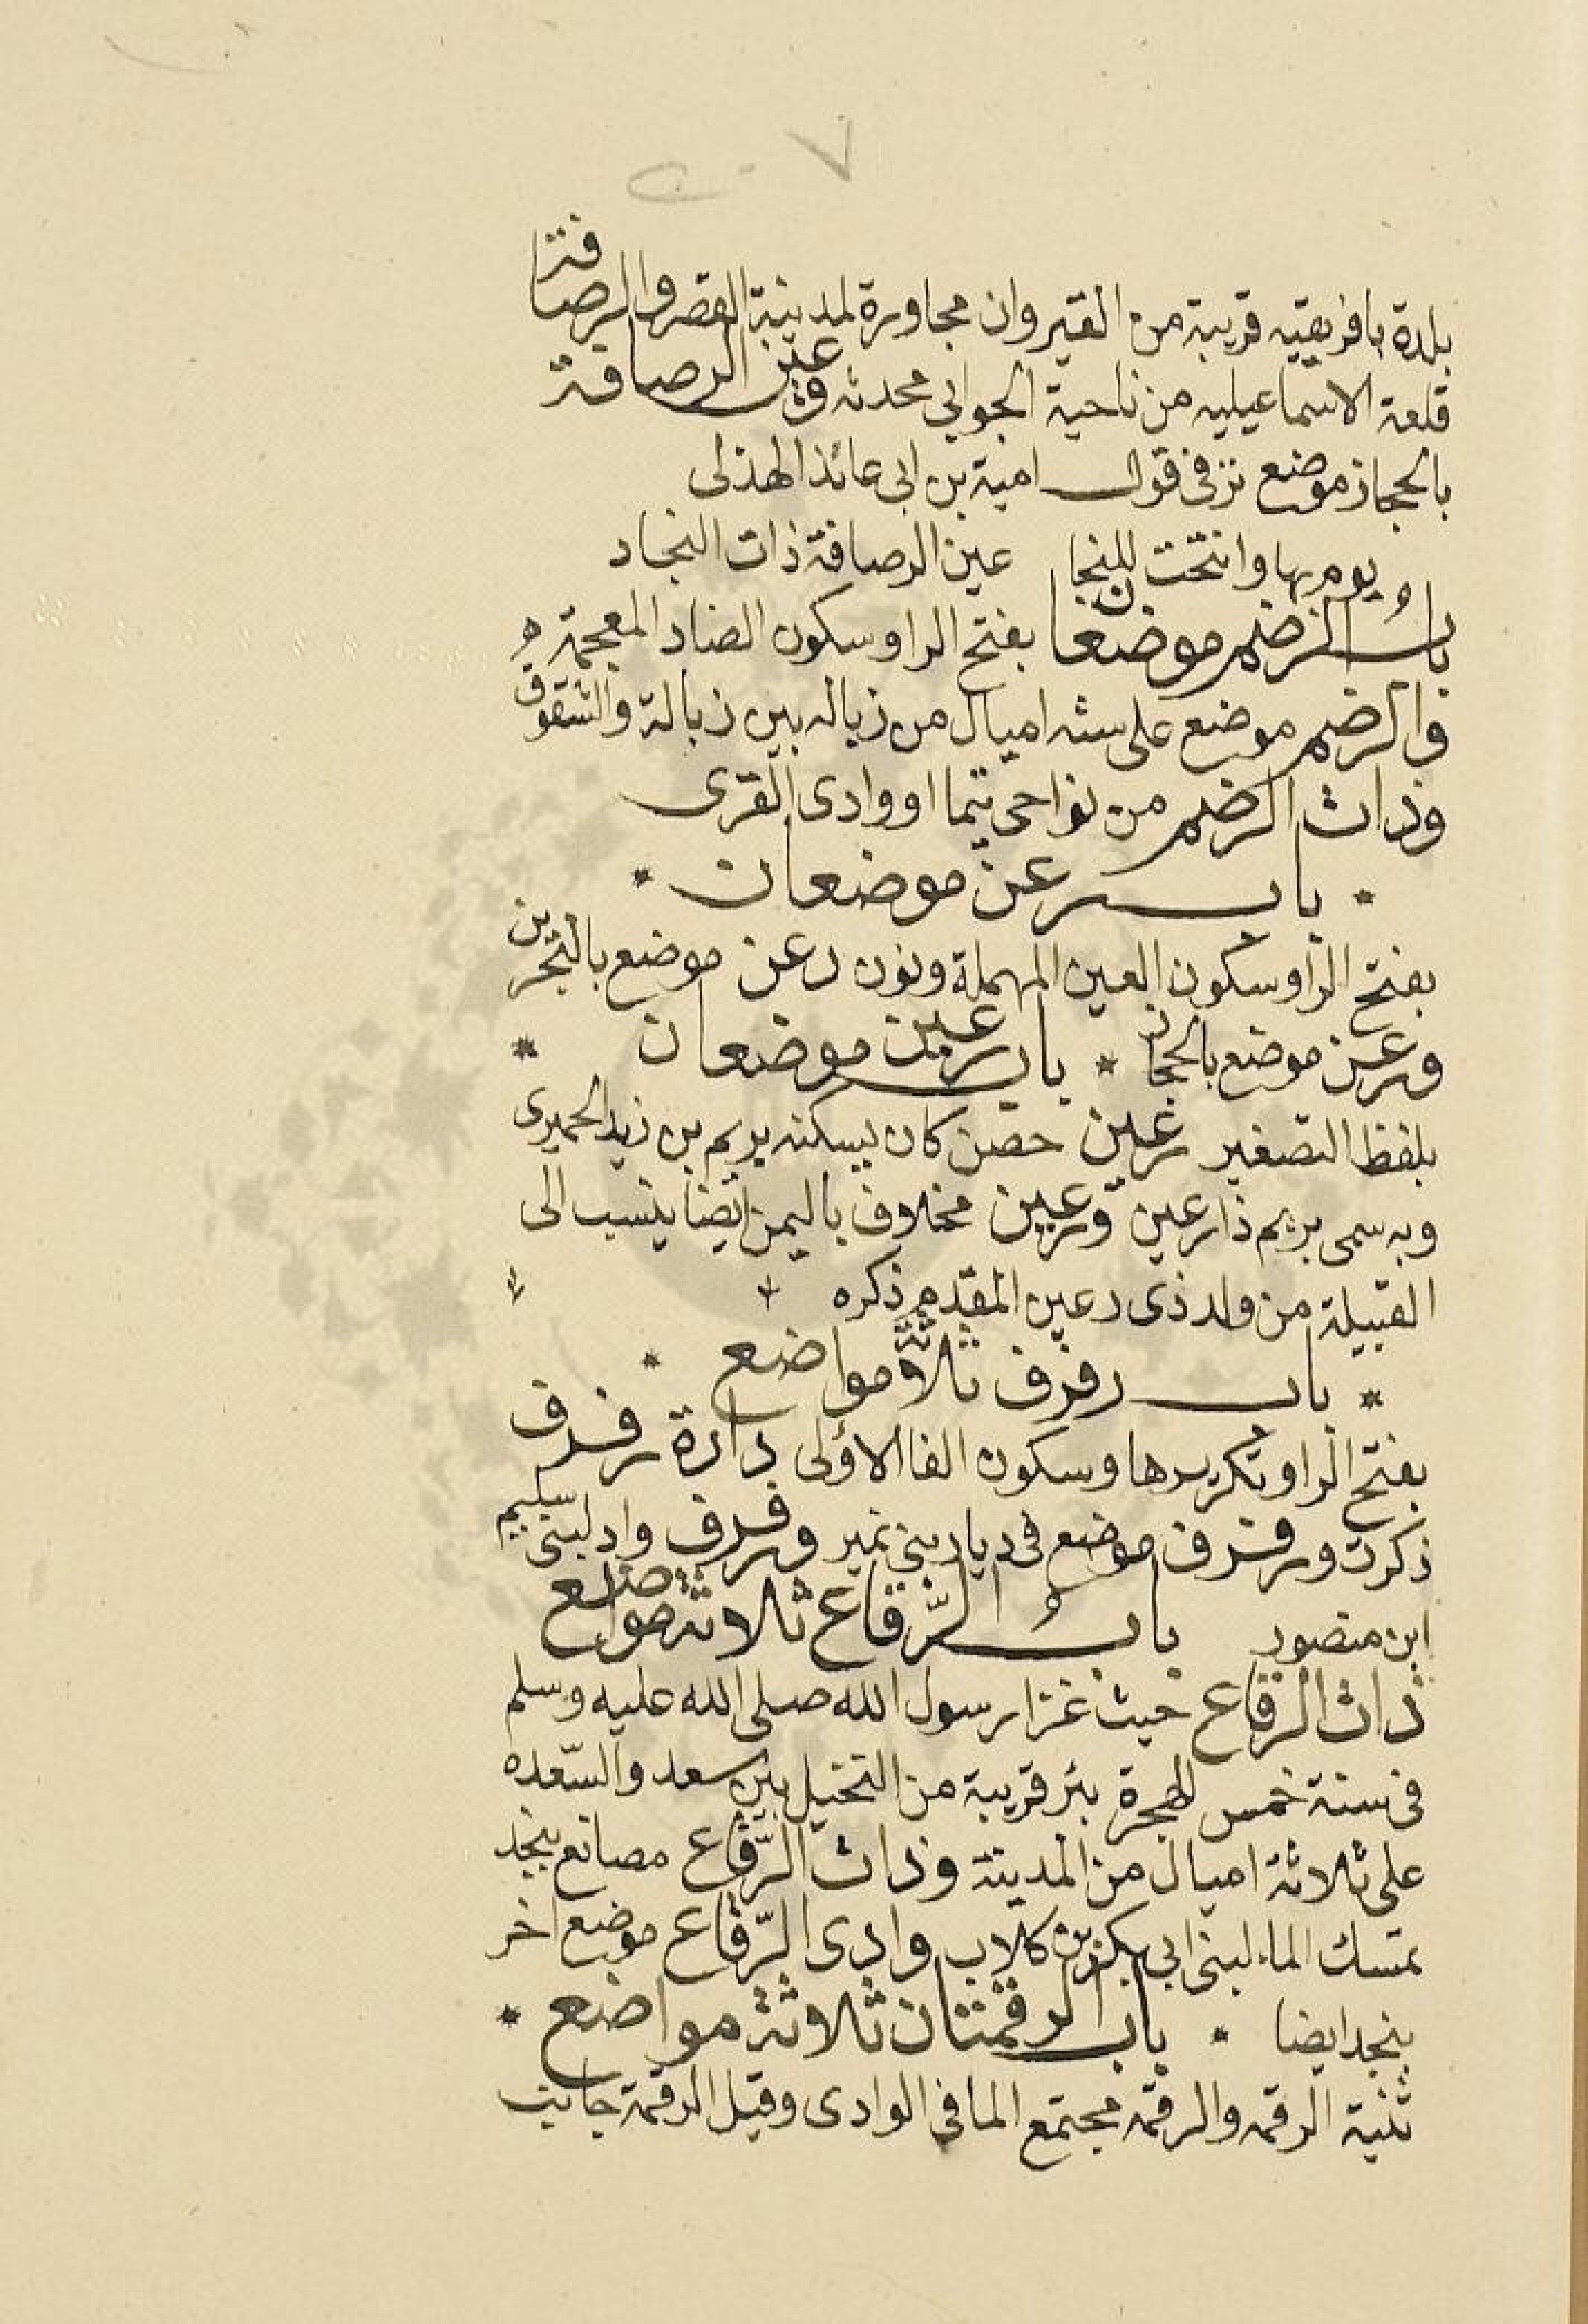 بلدة بافريقيه قريبة من القيروان مجاورة لمدينة القصر والرصافة
قلعة الاسماعيليه من ناحية الجوابي محدثه وعين الرصافة
بالحجاز موضع نز فى قول امية بن ابى عائذ الهذلى
يوم بها وانتحت للنجا عين الرصافة ذات النجاد
باب الرضم موضعان بفتح الرا وسكون الضاد المعجمة
والرضم موضع على سته اميال من زباله بين زبالة والشقوق
وذات الرضم من نواحى تيما او وادى القرى
* باب رعن موضعان *
بفتح الرا وسكون العين المهملة ونون رعن موضع بالبحرين
ورعن موضع بالحجاز * باب رعين موضعان *
بلفظ التصغير رعين حصن كان يسكنه يريم بن زيد الحميرى
وبه سمى يريم ذا رعين ورعين مخلاف باليمن ايضا ينسب الى
القبيلة من ولد ذى رعين المقدم ذكره
* باب رفرف ثلاثة مواضع *
بفتح الرا وتكريرها وسكون الفا الاولى دارة رفرف
ذكرت ورفرف موضع فى ديار بنى نمير ورفرف واد لبنى سليم
ابن منصور باب الرقاع ثلاثة مواضع
ذات الرقاع حيث غزا رسول الله صلى الله عليه وسلم
فى سنة خمس للهجرة بئر قريبة من النخيل بين سعد والسعده
على ثلاثة اميال من المدينة وذات الرقاع مصانع بنجد
تمسك الماء لبنى ابى بكر بن كلاب وادى الرقاع موضع اخر
بنجد ايضا * باب الرقمتان ثلاثة مواضع *
تثنية الرقمه والرقمه مجتمع الما فى الوادى وقيل الرقمة جانب